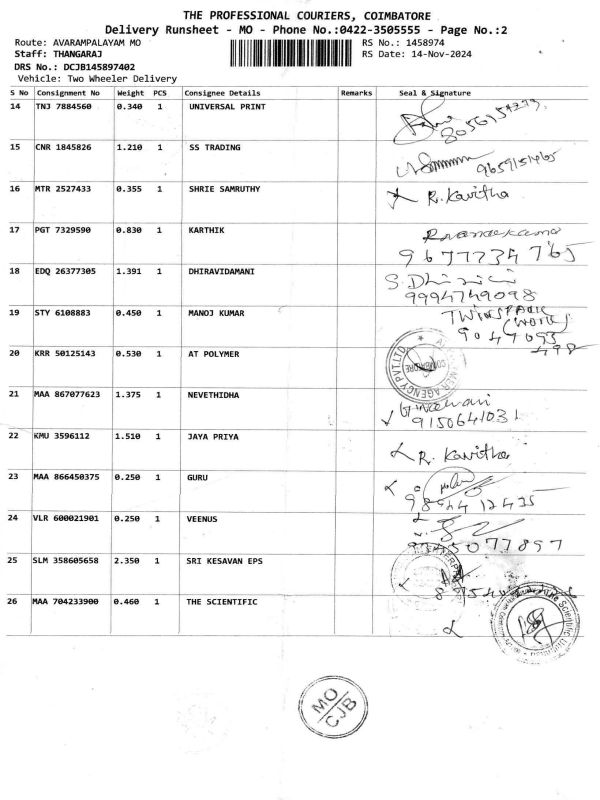 THE PROFESSIONAL COURIERS, COIMBATORE
Delivery Runsheet - MO - Phone No.:0422-3505555 - Page No.:2
Route: AVARAMPALAYAM MO RS No.: 1458974
Staff: THANGARAJ RS Date: 14-Nov-2024
DRS No.: DCJB145897402
Vehicle: Two Wheeler Delivery
S No Consignment No Weight PCS Consignee Details Remarks Seal & Signature
14 TNJ 7884560 0.340 1 UNIVERSAL PRINT
15 CNR 1845826 1.210 1 SS TRADING
9659151465
16 MTR 2527433 0.355 1 SHRIE SAMRUTHY R. Kavitha
17 PGT 7329590 0.830 1 KARTHIK
9677734765
18 EDQ 26377305 1.391 1 DHIRAVIDAMANI
9994749098
19 STY 6108883 0.450 1 MANOJ KUMAR
20 KRR 50125143 0.530 1 AT POLYMER
AGENCY PVT.LTD.
COIMBATORE
21 MAA 867077623 1.375 1 NEVETHIDHA
9150641031
22 KMU 3596112 1.510 1 JAYA PRIYA R. Kavitha
23 MAA 866450375 0.250 1 GURU
24 VLR 600021901 0.250 1 VEENUS
25 SLM 358605658 2.350 1 SRI KESAVAN EPS
26 MAA 704233900 0.460 1 THE SCIENTIFIC
MO
CJB